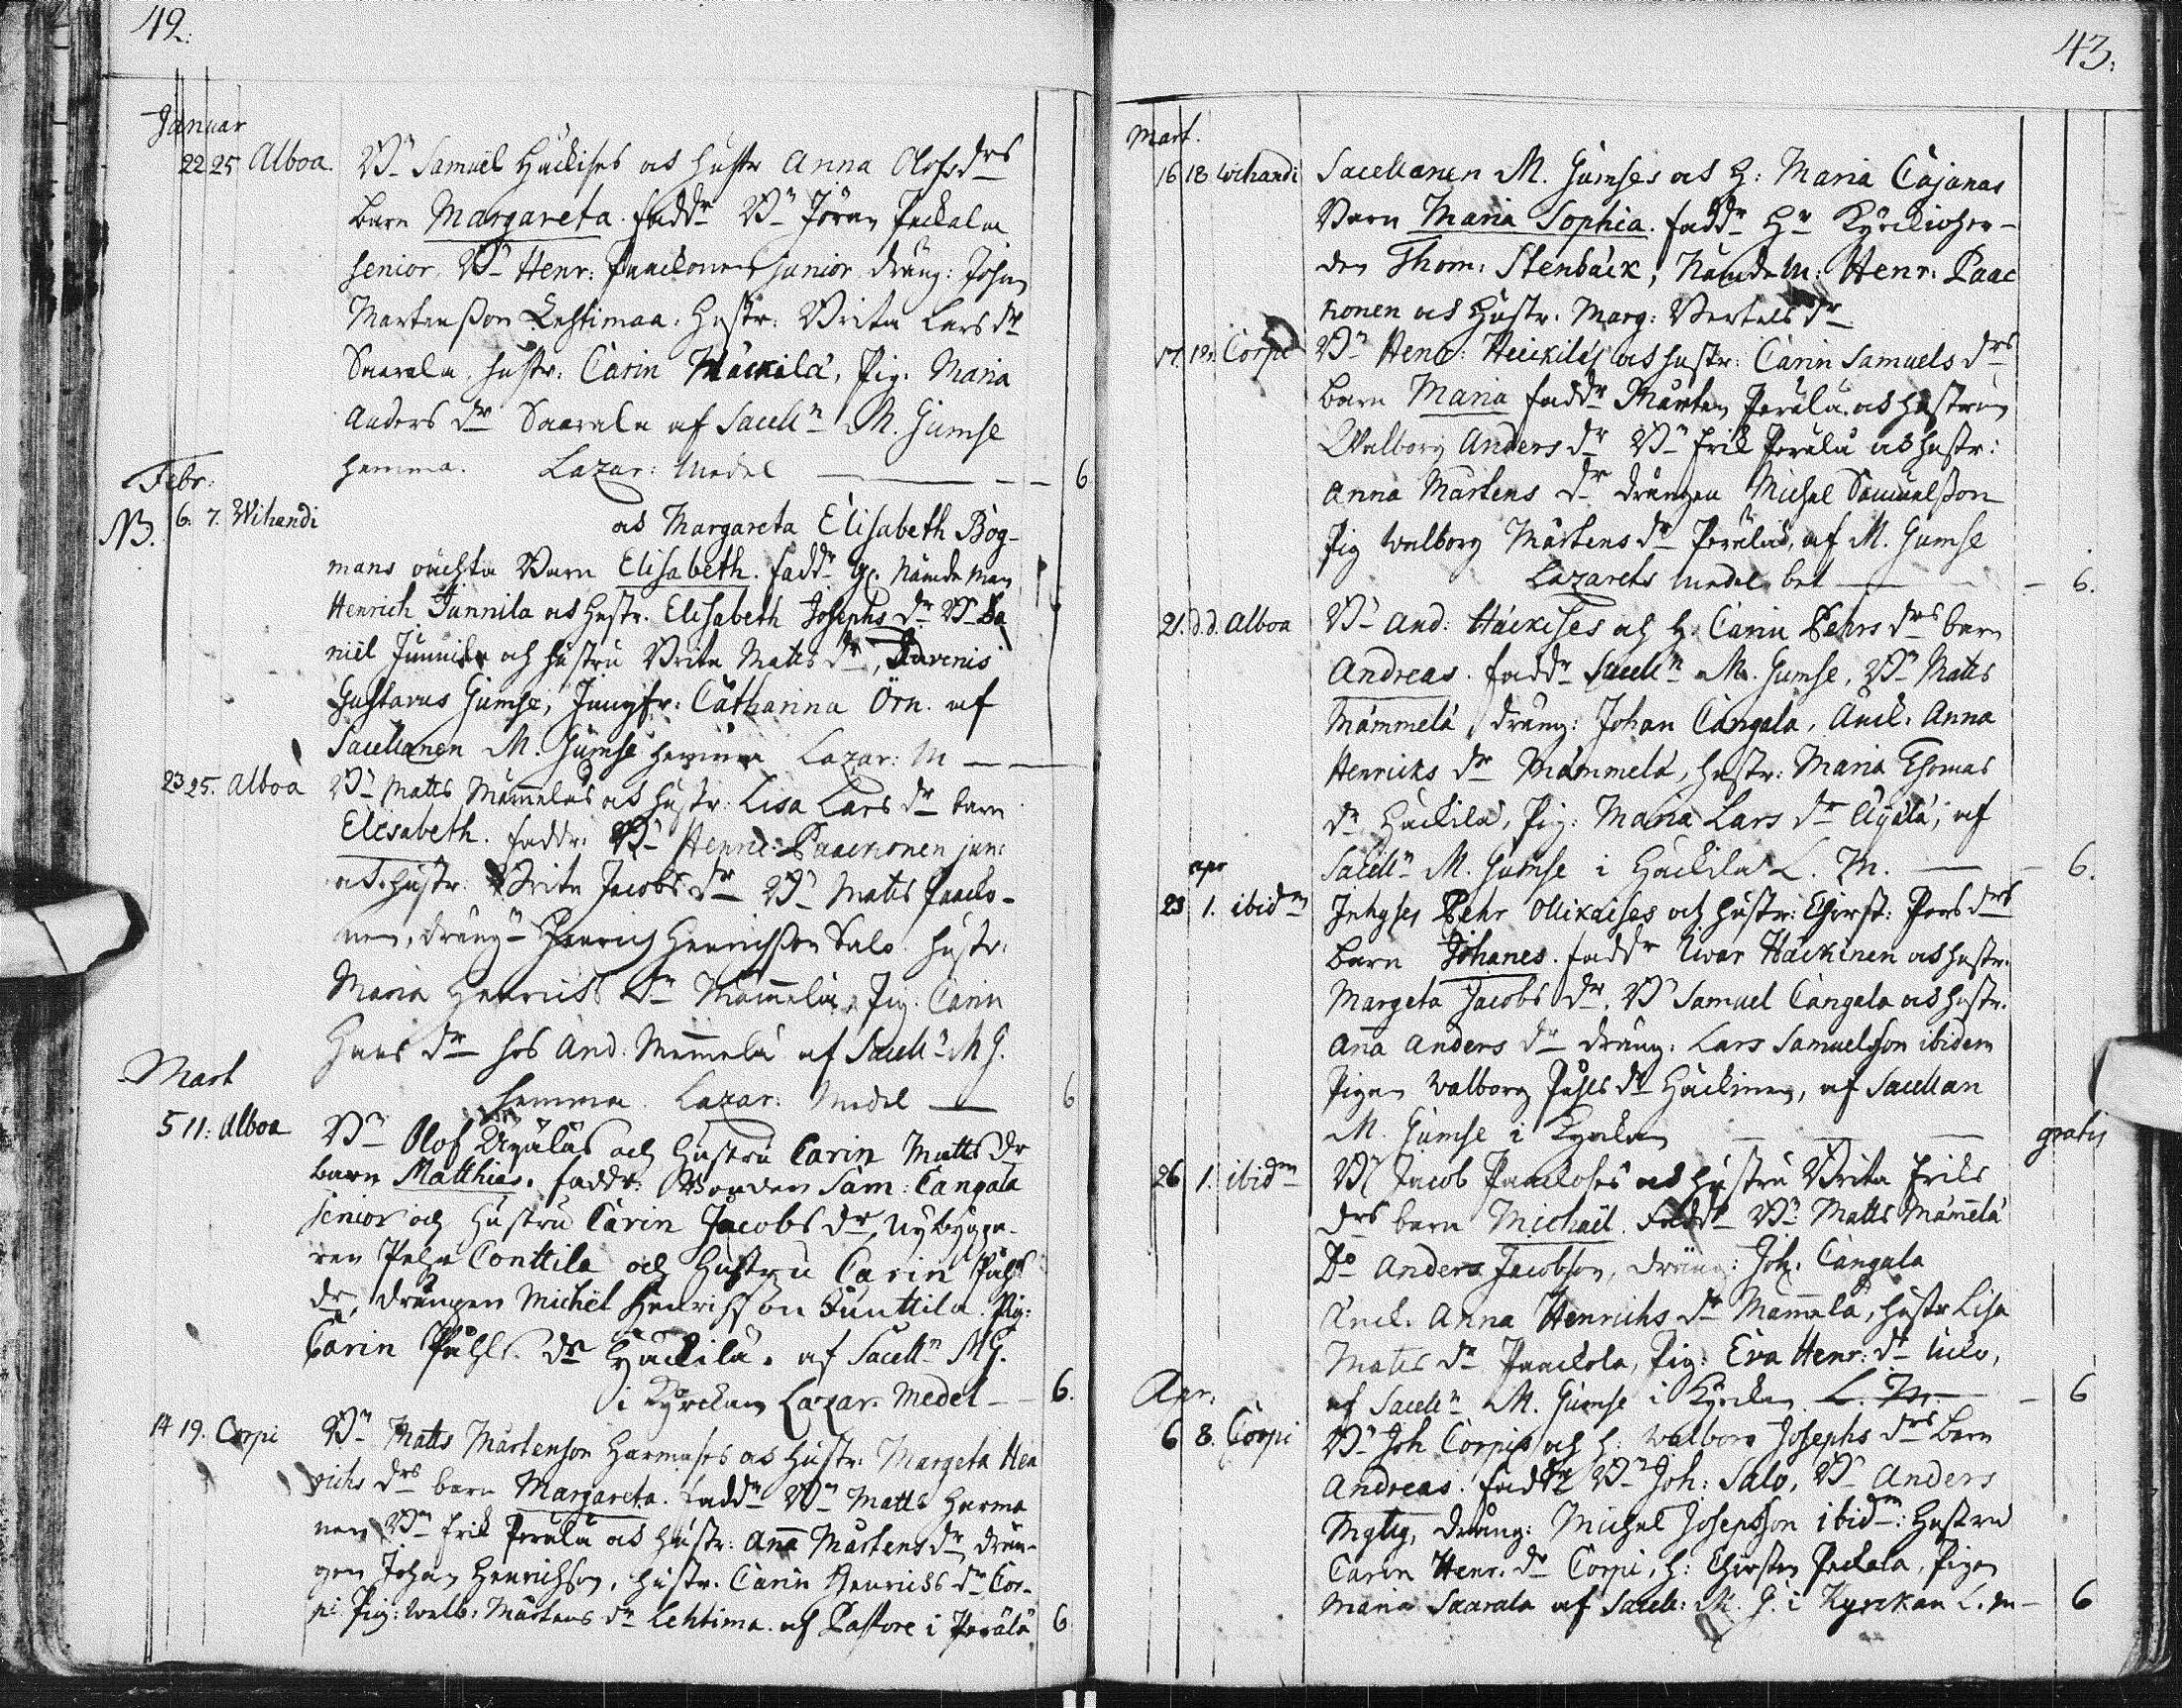 42.
Januar
22 25 Alboa. Bn Samuel Häckises och hustr Anna Olofs drs
barn Margareta. faddr Bn Jöran Peckala
senior, Bn Henr: Paackonen junior dräng: Johan
Martensson Lehtimaa. Hustr: Brita Lars dr
Saarela. hustr: Carin Mäckilä, Pig. Maria
Anders dr Saarela af Sacelln M. Gumse
hemma. Lazar: Medel — 6
Febr:
NB. 6. 7. Wihandi och Margareta Elisabeth Bög-
mans oächta Barn Elisabeth. faddr Nämdeman
Henrich Junnila och Hustr. Elisabeth Josephs dr Bn Da
niel Junnila och hustru Brita Matts dr,
Gustavus Gumse, Jungfr: Catharina Örn. af
Sacellanen M. Gumse hemma Lazar: M —
23 25. Alboa Bn Matts Mämmeläs och hustr: Lisa Lars dr barn
Elisabeth. faddr: Bn Henric: Paackonen jun:
och hustr: Brita Jacobs dr Bn Matts Paacko-
nen, dräng Henrich Henrichsson Salo. hustr:
Maria Henrichs dr Mämmelä, Pig: Carin
Hans dr hos And. Memmelä af Sacelln MG.
hemma Lazar: Medel — 6
Mart
5 11: Alboa Bn Olof Äijäläs och hustru Carin Matts dr
barn Matthias. faddr: Bonden Sam: Cangala
senior och hustru Carin Jacobs dr, Nybygga-
ren Påhl Conttila och Hustru Carin Påhls
dr, Drängen Michel Henrichsson Junttila. Pig:
Carin Påhls dr Häckilä. af Sacelln MG.
i Kyrckan Lazar. Medel — 6.
14 19. Corpi Bn Matts Mårtenson Harmases och hustr: Margeta Hen
richs drs barn Margareta. faddr Bn Matts Harma
nen Bn Erik Perälä och hustr: Ana Mårtens dr, drän-
gen Johan Henrichson, hustr. Carin Henrichs dr Cor-
pi Pig: Walb: Mårtens dr Lehtima. af Pastore i Perälä 6
43.
Mart.
16 18 Wihandi Sacellanen M. Gumses och H: Maria Cajanas
Barn Maria Sophia. faddr Hr Kyrckioher-
den Thom: Stenbäck, Nämdem: Henr: Paac
konen och Hustr. Marg: Bertels dr
17. 18. Corpi Bn Henr: Heickiläs och hustr: Carin Samuels drs
barn Maria faddr Mårten Perälä och hustrun
Walborg Anders dr Bn Erik Perälä och hustr:
Anna Mårtens dr drängen Michel Samuelsson
Pig Walborg Mårtens dr Perälä, af M. Gumse
Lazarets medel bet — 6.
21. d.d. Alboa Bn And: Häckises och H: Carin Pehrs drs barn
Andreas. faddr Sacelln M. Gumse, Bn Matts
Mämmelä, dräng: Johan Cangala, Anna
Henricks dr Mämmelä, hustr: Maria Thomas
dr Häckilä, Pig: Maria Lars dr Äijälä, af
Sacelln M. Gumse i Häckilä L. M. — 6.
apr
23 1. ibidm Inhyses Pehr Ollikaises och hustr: Christ: Pers drs
barn Johanes. faddr Iwar Häckinen och hustr.
Margeta Jacobs dr. Bn Samuel Cangala och hustr.
Ana Anders dr dräng. Lars Samuelsson ibidem
Pigan Walborg Påhls dr Häckinen, af Sacellan
M. Gumse i Kyrckan — gratis
26 1. ibidm Bn Jacob Paackoses och hustru Brita Eriks
drs barn Michaël. Faddr Bn Matts Mämelä
Do Anders Jacobson, dräng: Joh: Cangala
Anna Henrichs dr Mämelä, hustr Lisa
Matts dr Paackola, Pig: Eva Henr: dr
af Sacelln M. Gumse i Kyrckan L. M. — 6
Apr:
6 8. Corpi Bn Joh Corpis och h: Walborg Josephs drs barn
Andreas. faddr Bn Joh: Salo, Bn Anders
dräng: Michel Josepsson ibidm: Hustru
Carin Henr. dr Corpi, h: Christin Peckala, Pigan
Maria Saarala af Sacell: M. G. i Kyrckan L. m — 6